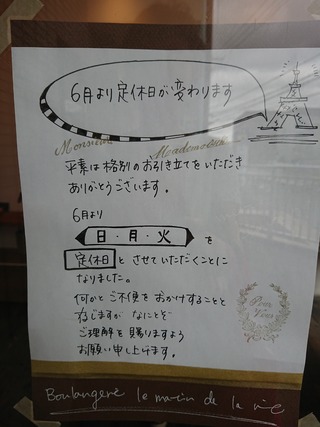 6月より定休日が変わります
Monsieur
Meademoisen
平素は格別のお引き立てをいただき
ありがとうございます。
6月より
日・月・火 を
定休日 とさせていただくことに
なりました。
何かとご不便をおかけすることと
存じますがなにとぞ
ご理解を賜りますよう
お願い申し上げます。
Pour
Vous
Boulangerie le matin de la vie